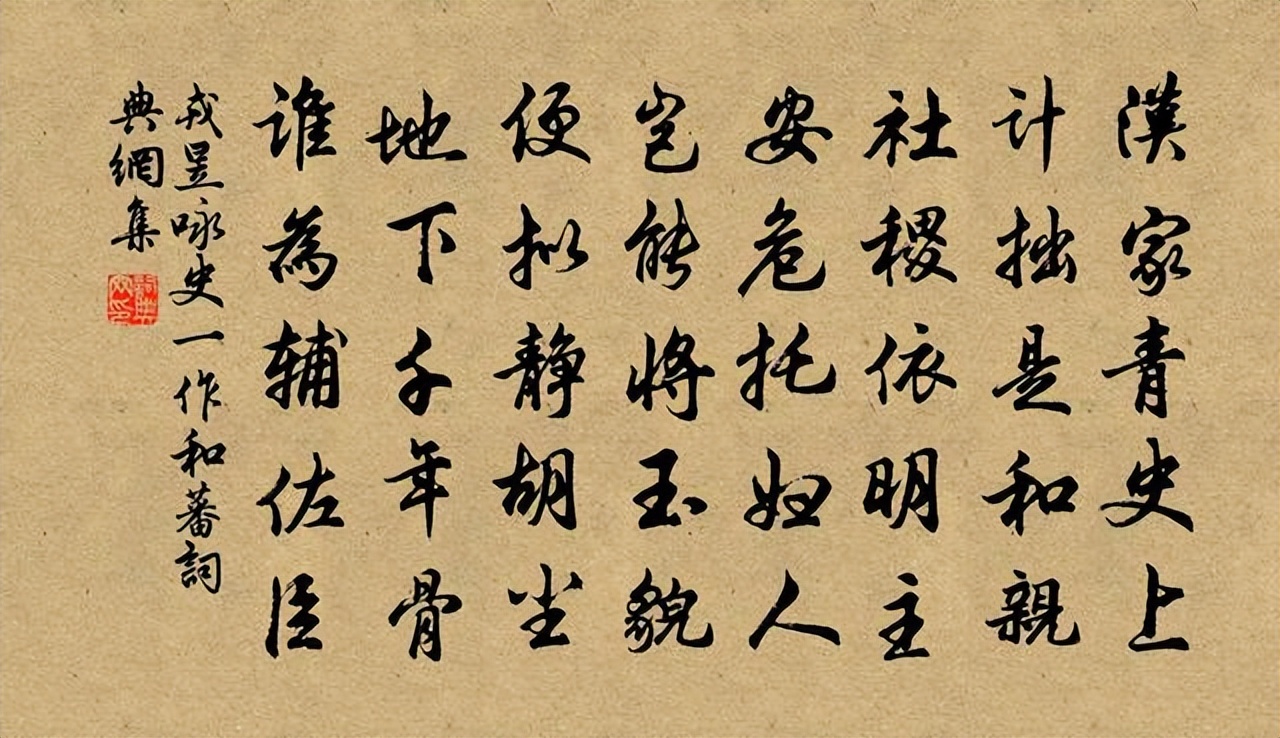 漢家青史上
計拙是和親
社稷依明主
安危托妇人
岂能將玉貌
便拟静胡尘
地下千年骨
誰為辅佐臣
戎昱咏史一作和蕃詞
典網集